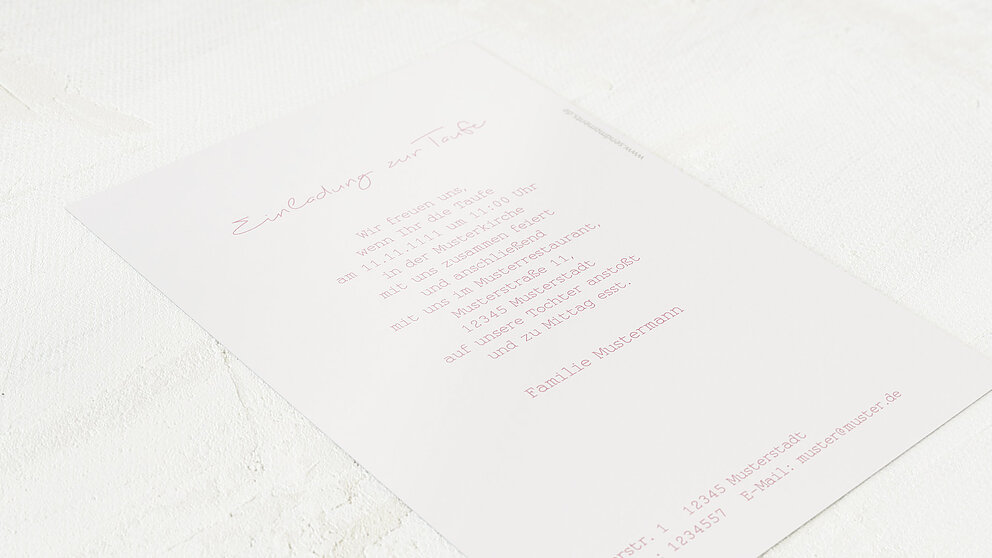 Einladung zur Taufe
Wir freuen uns,
wenn Ihr die Taufe
am 11.11.1111 um 11:00 Uhr
in der Musterkirche
mit uns zusammen feiert
und anschließend
mit uns im Musterrestaurant,
Musterstraße 11,
12345 Musterstadt
auf unsere Tochter anstoßt
und zu Mittag esst.
Familie Mustermann
1 12345 Musterstadt
: 1234557 E-Mail: muster@muster.de